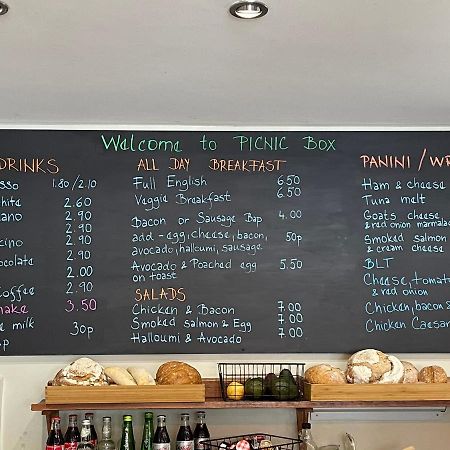 Welcome to PICNIC BOX
DRINKS
1.80/2.10
2.60
2.90
2.90
2.90
2.90
2.00
Coffee 2.90
3.50
milk 30p
ALL DAY BREAKFAST
Full English 6.50
Veggie Breakfast 6.50
Bacon or Sausage Bap 4.00
add - egg, cheese, bacon, 50p
avocado, halloumi, sausage
Avocado & Poached egg 5.50
on toast
SALADS
Chicken & Bacon 7.00
Smoked salmon & Egg 7.00
Halloumi & Avocado 7.00
PANINI / WR
Ham & cheese
Tuna melt
Goats cheese,
& red onion marmalad
Smoked salmon
& cream cheese
BLT
Cheese, tomato
& red onion
Chicken, bacon &
Chicken Caesar